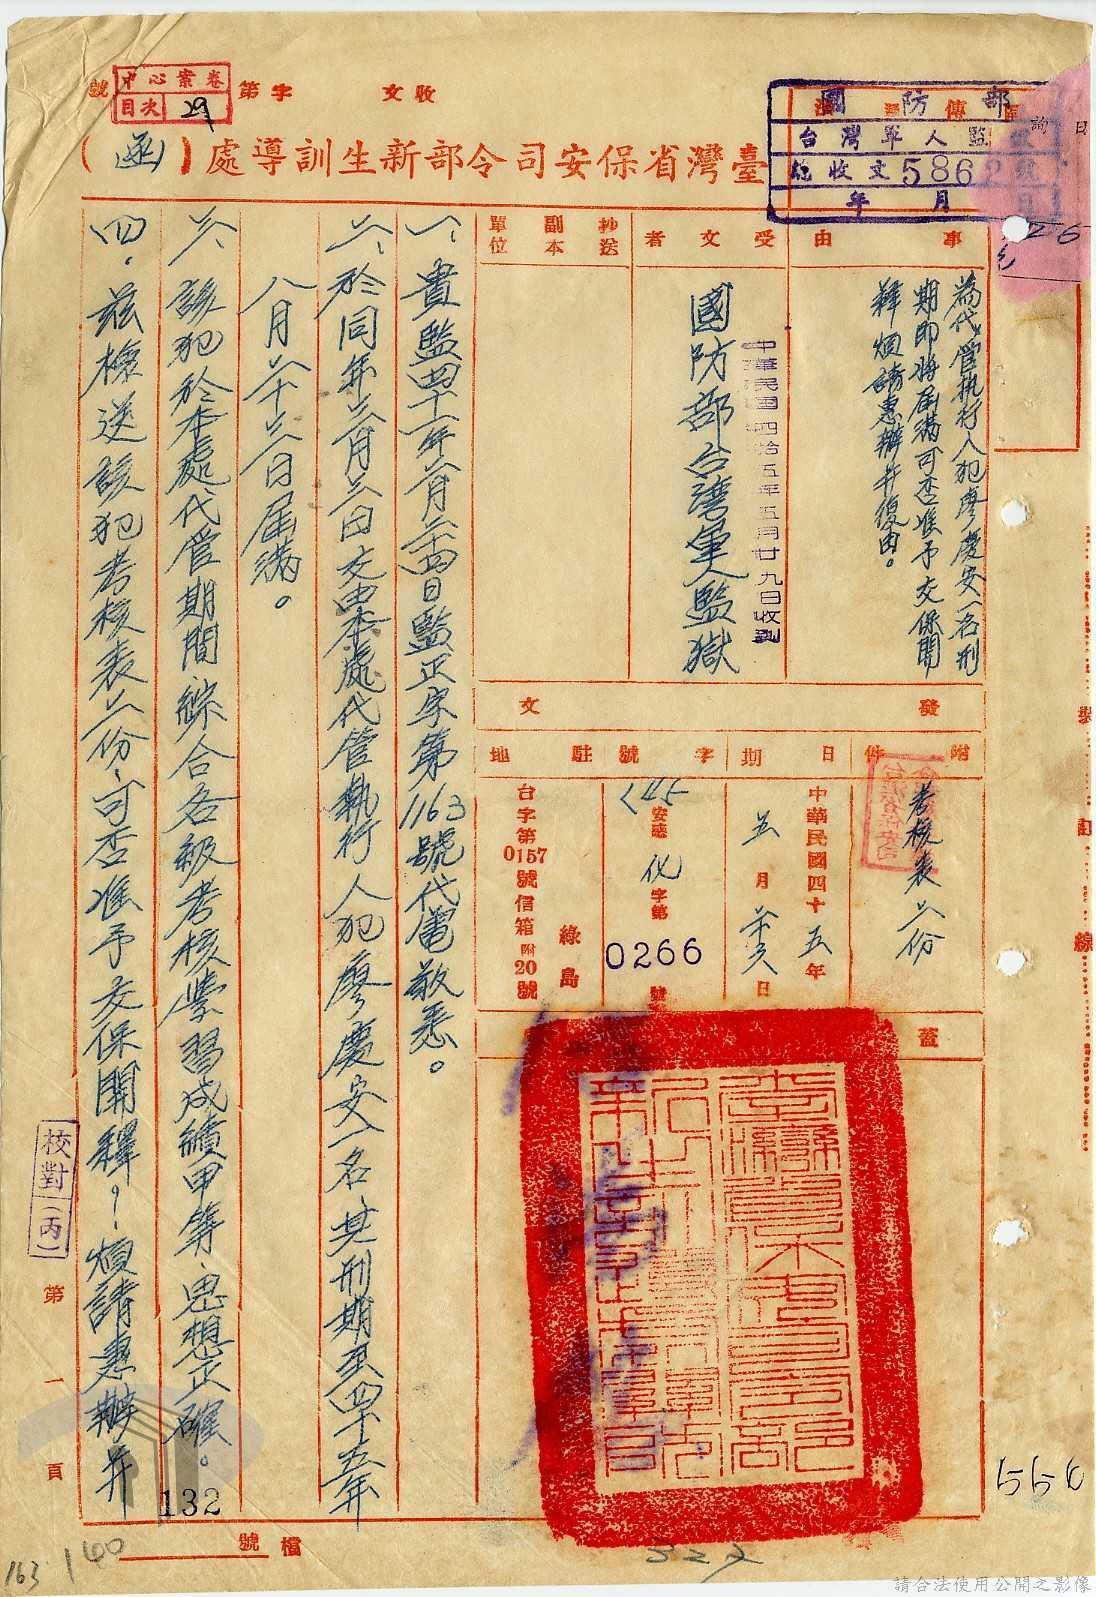 收文 字第 號
中心案卷
目次 29
國防部
台灣軍人監
總收文 586
年 月
臺灣省保安司令部新生訓導處（函）
事由
為代管執行人犯廖慶安一名刑
期即將屆滿可否准予交保開
釋煩請惠辦并復由。
受文者
國防部台灣軍人監獄
中華民國四拾五年五月廿九日收到
抄送副本單位
發文
附件
考核表二份
日期
中華民國四十五年
五月 日
字號
安 字第 0266 號
駐地
綠島
台字第0157號信箱附20號
蓋
一、貴監四十一年 月 日監正字第1163號代電敬悉。
二、於同年 月 日交由本處代管執行人犯廖慶安一名，其刑期至四十五年
八月 日屆滿。
三、該犯於本處代管期間，綜合各級考核學習成績甲等，思想正確。
四、茲檢送該犯考核表二份，可否准予交保開釋？煩請惠辦并
校對（丙）
第一頁
裝訂線
132
檔號
160
163
556
327
請合法使用公開之影像